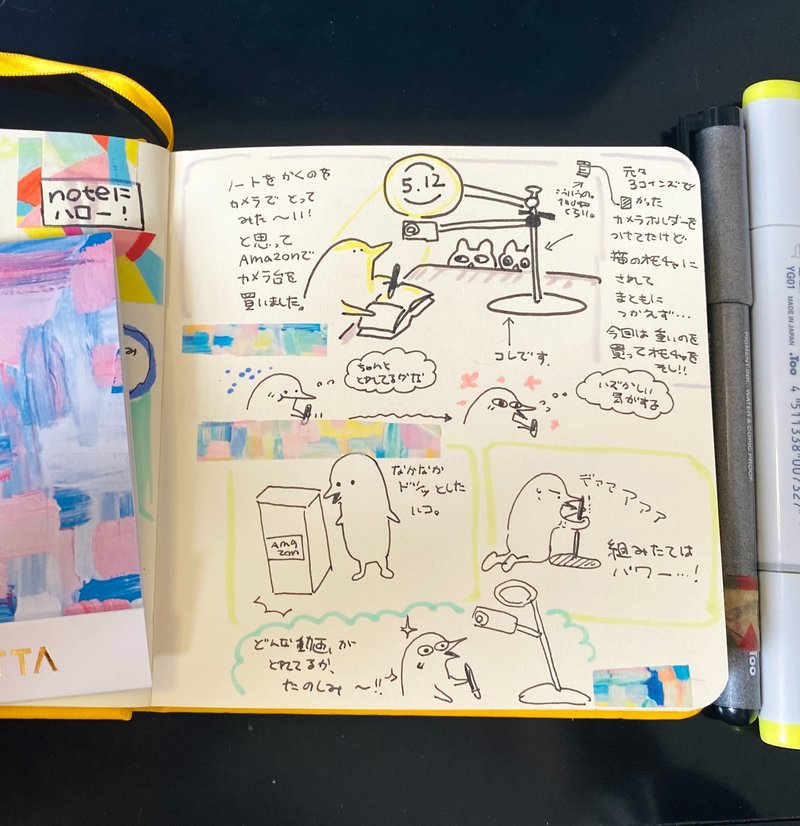 noteに
ハロー！
み
TTA
ノートをかくのを
カメラでとって
みた〜い！
と思って
Amazonで
カメラ台を
買いました。
5.12
こういうの。
くらい。
元々
3コインズで
かった
カメラホルダーを
つけてたけど
猫のオモチャに
されて
まともに
つかえず…
今回は重いのを
買ってオモチャを
そし!!
コレです。
ちゃんと
とれてるかな
はずかしい
気がする
なかなか
ドシッとした
ハコ。
Ama
zon
デアアアアア
組みたては
パワー…！
どんな動画が
とれてるか、
たのしみ〜!!
PIGMENT INK, WATER & FADE PROOF
YG01
MADE IN JAPAN
.Too
4 511338 007327
Too